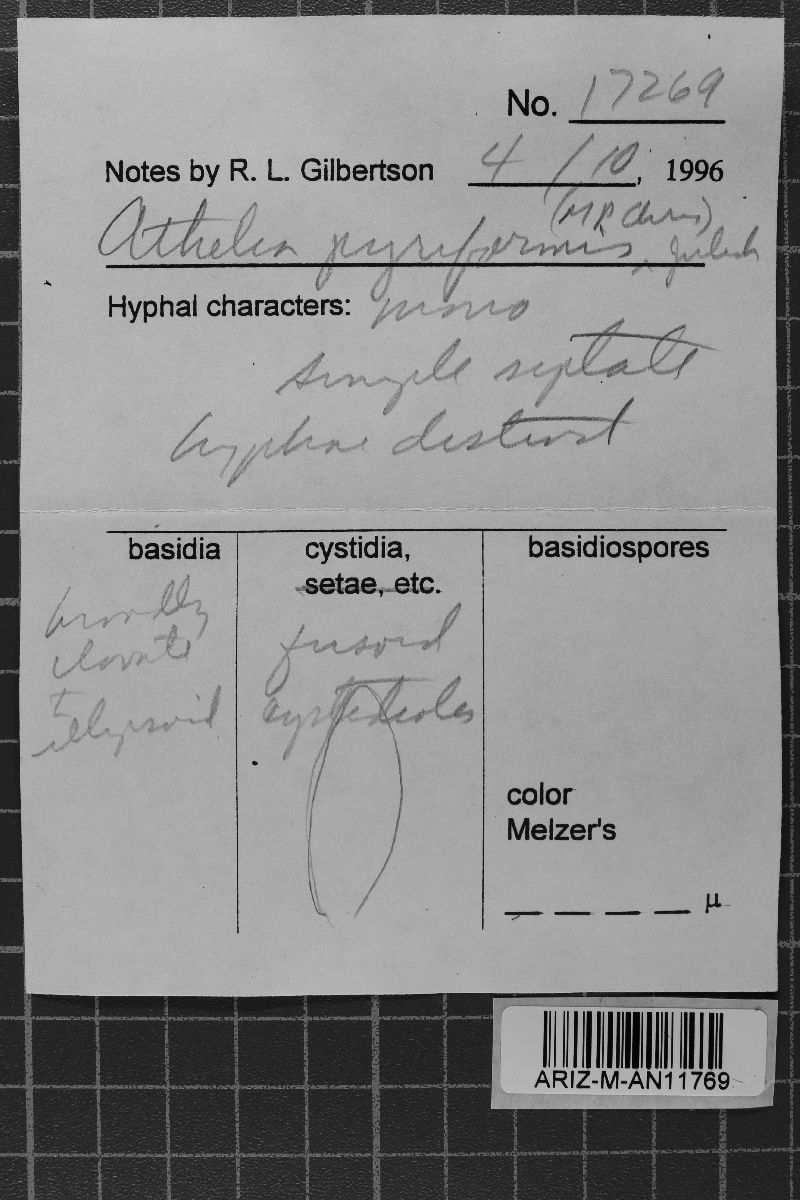 No. 17269
Notes by R. L. Gilbertson 4/10, 1996
(M.P. Chris)
Athelia pyriformis ^ Jülich
Hyphal characters: mono
simple septate
hyphae distinct
basidia
broadly
clavate
+
ellipsoid
cystidia,
setae, etc.
fusoid
cystidioles
basidiospores
color
Melzer's
_ _ _ _ μ
ARIZ-M-AN11769